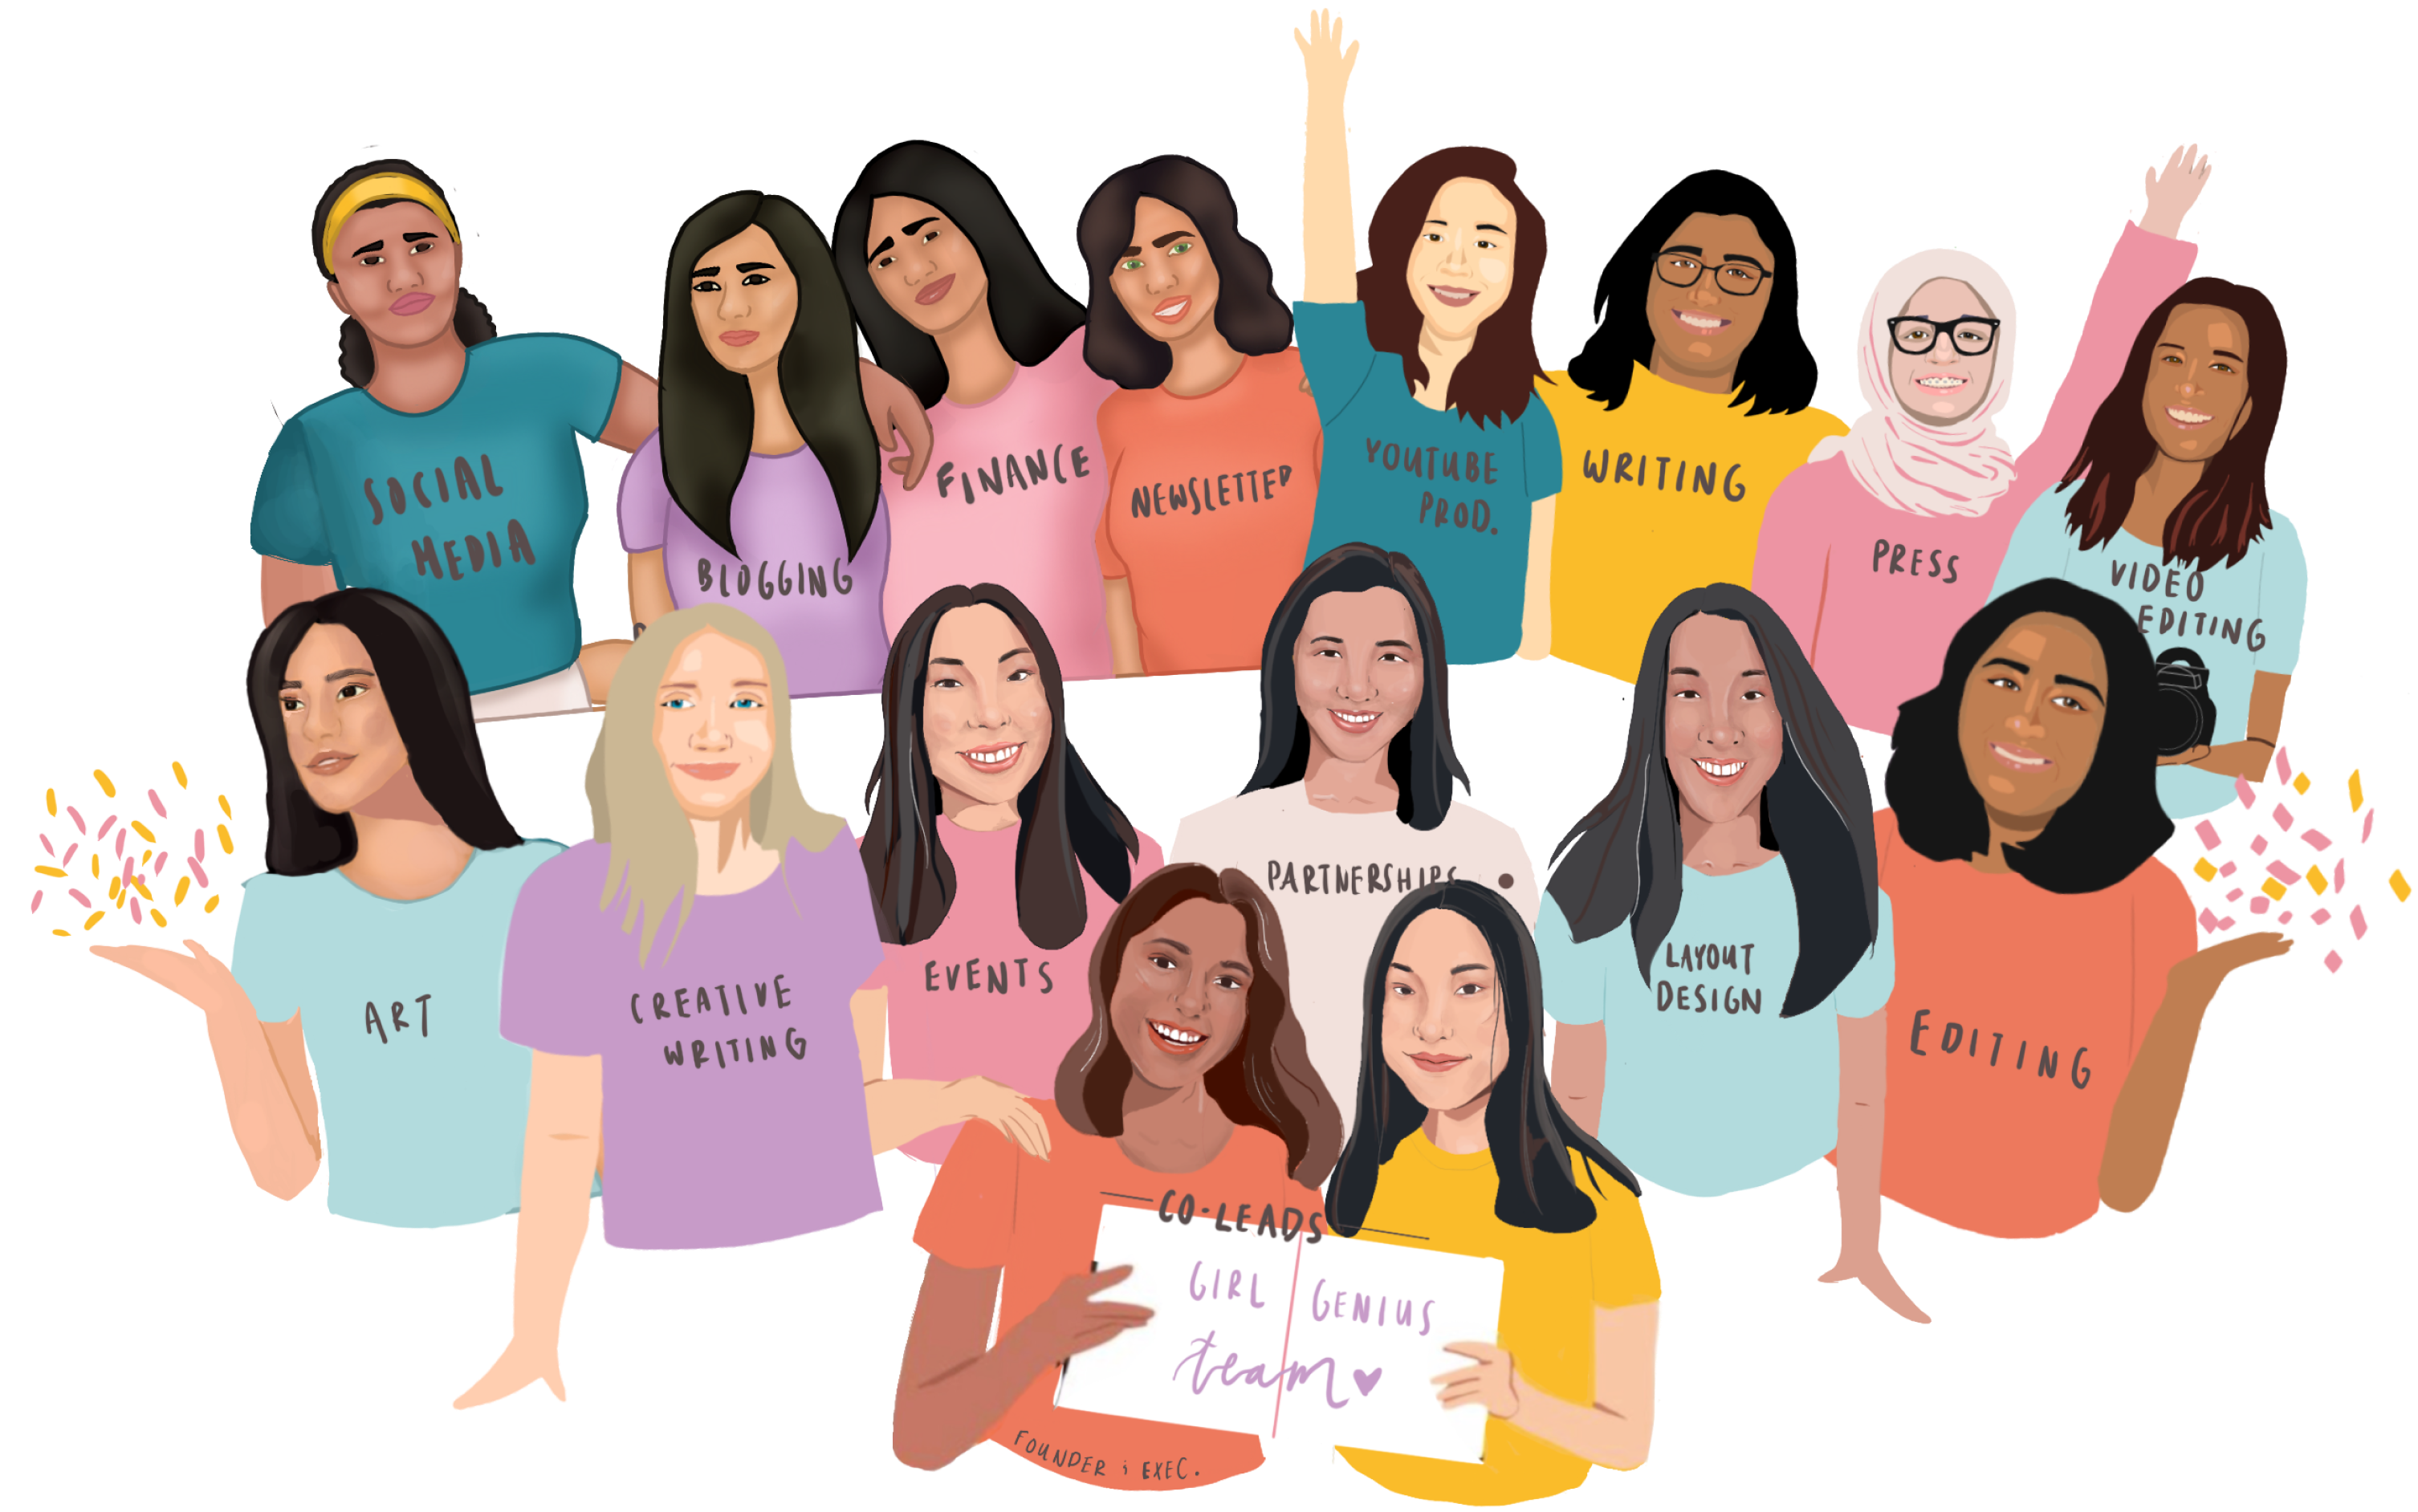 SOCIAL
MEDIA
BLOGGING
FINANCE
NEWSLETTER
YOUTUBE
PROD.
WRITING
PRESS
VIDEO
EDITING
ART
CREATIVE
WRITING
EVENTS
PARTNERSHIPS
LAYOUT
DESIGN
EDITING
CO-LEADS
GIRL GENIUS
team
FOUNDER ; EXEC.